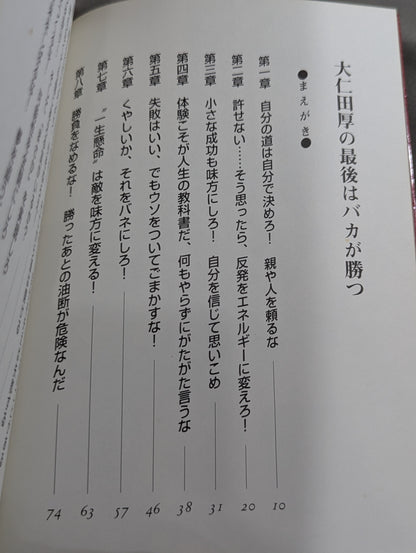 大仁田厚の最後はバカが勝つ
●まえがき●
第一章 自分の道は自分で決めろ! 親や人を頼るな 10
第二章 許せない……そう思ったら、反発をエネルギーに変えろ! 20
第三章 小さな成功も味方にしろ! 自分を信じて思いこめ 31
第四章 体験こそが人生の教科書だ、何もやらずにがたがた言うな 38
第五章 失敗はいい、でもウソをついてごまかすな! 46
第六章 くやしいか、それをバネにしろ! 57
第七章 “一生懸命”は敵を味方に変える! 63
第八章 勝負をなめるな! 勝ったあとの油断が危険なんだ 74